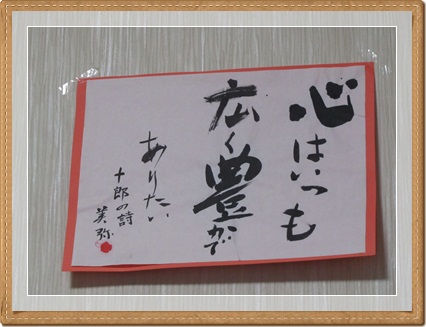 心はいつも
広く豊かで
ありたい
十郎の詩
美弥